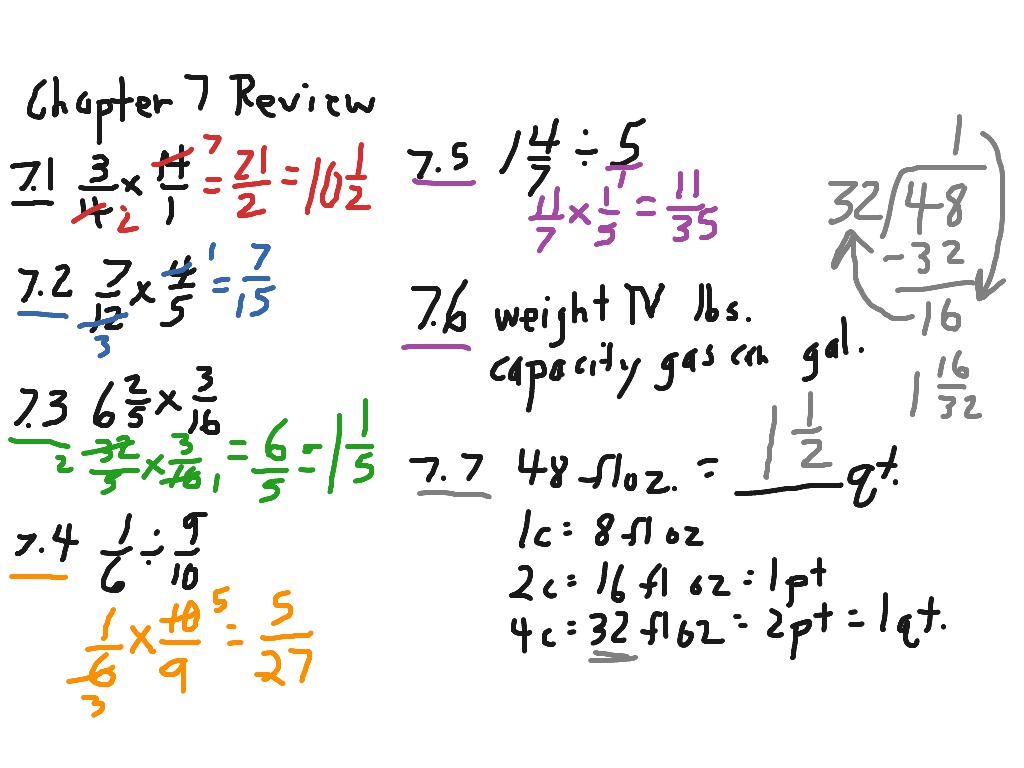 Chapter 7 Review
7.1 3/4 × 14/1 = 21/2 = 10 1/2
7 2
7.2 7/12 × 4/5 = 7/15
1 3
7.3 6 2/5 × 3/16
2 32/5 × 3/16 1 = 6/5 = 1 1/5
7.4 1/6 ÷ 9/10
1/6 × 10/9 = 5/27
5 3
7.5 1 4/7 ÷ 5/1
11/7 × 1/5 = 11/35
7.6 weight TV lbs.
capacity gas can gal.
7.7 48 fl oz. = 1 1/2 qt.
1c = 8 fl oz
2c = 16 fl oz = 1pt
4c = 32 fl oz = 2pt = 1qt.
1
32 48
-32
16
1 16/32